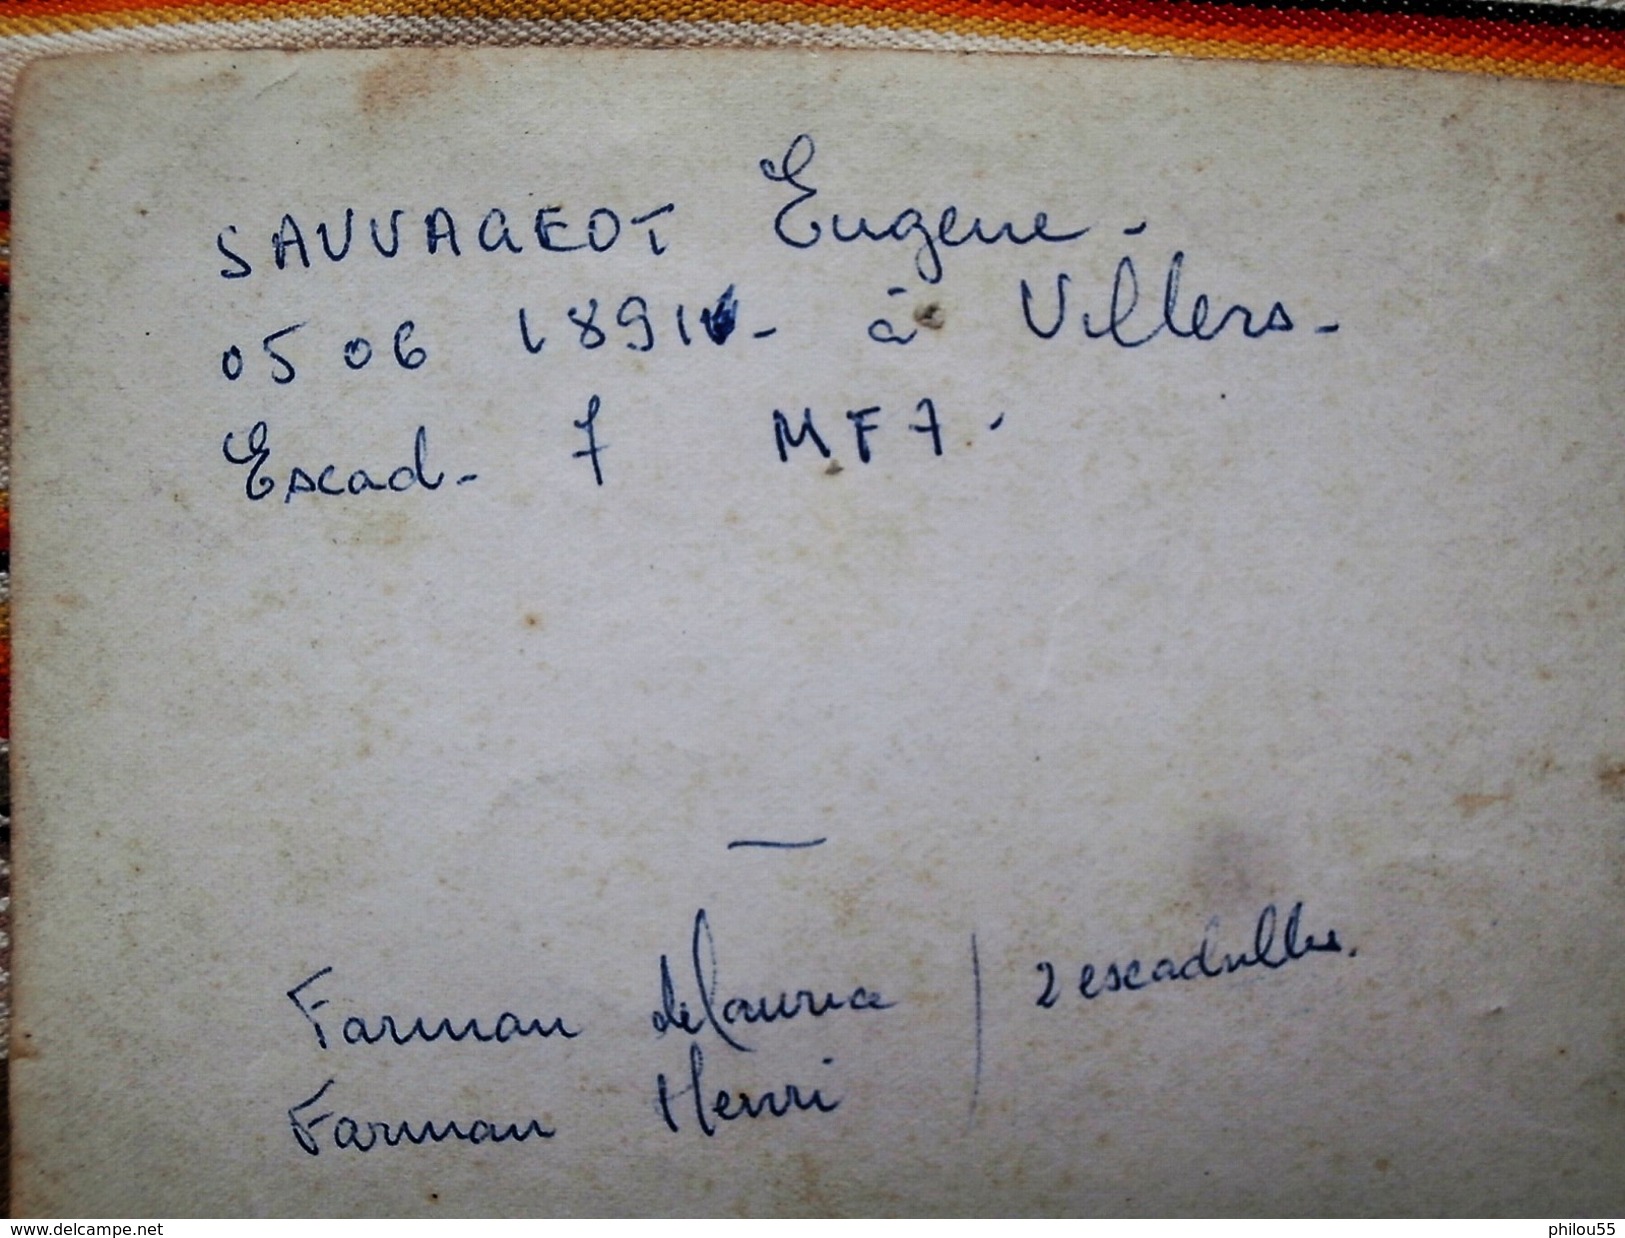 SAUVAGEOT Eugene -
05 06 1891 - à Villers -
Escad - 7 MF7 -
Farman Maurice / 2 escadrilles.
Farman Henri
www.delcampe.net
philou55